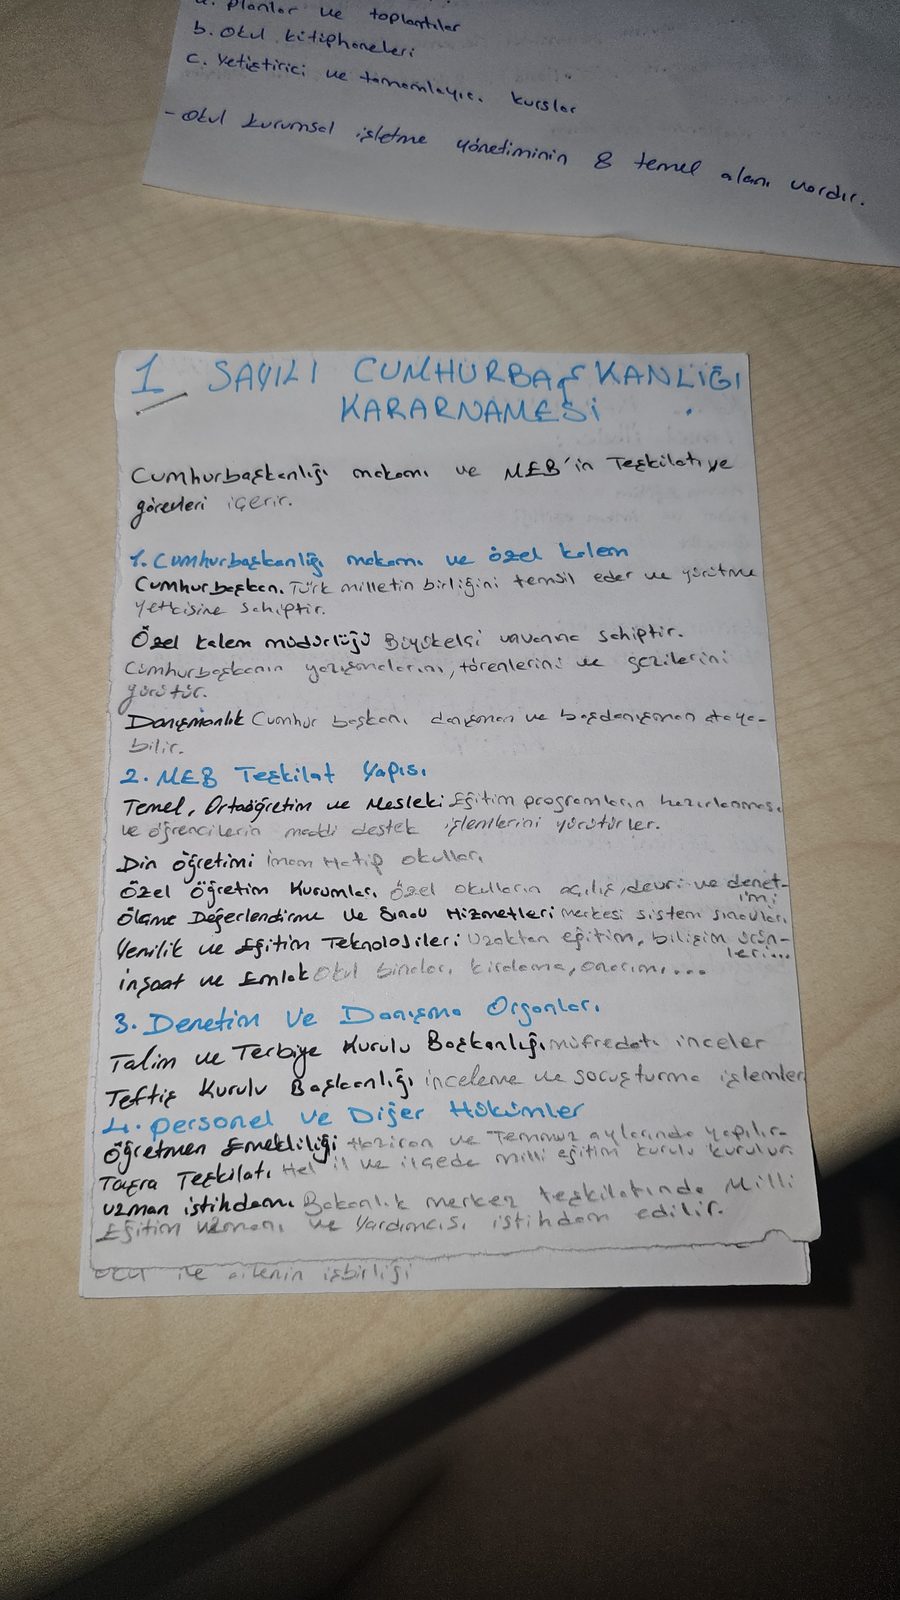 a. planlar ve toplantılar
b. Okul kütüphaneleri
c. Yetiştirici ve tamamlayıcı kurslar
- Okul kurumsal işletme yönetiminin 8 temel alanı vardır.
1 SAYILI CUMHURBAŞKANLIĞI
KARARNAMESİ
Cumhurbaşkanlığı makamı ve MEB'in Teşkilatı ve
görevleri içerir.
1. Cumhurbaşkanlığı makamı ve özel kalem
Cumhurbaşkanı Türk milletin birliğini temsil eder ve yürütme
yetkisine sahiptir.
Özel kalem müdürlüğü Büyükelçi unvanına sahiptir.
Cumhurbaşkanın yazışmalarını, törenlerini ve gezilerini
yürütür.
Danışmanlık Cumhur başkanı danışman ve başdanışman ataya-
bilir.
2. MEB Teşkilat Yapısı
Temel, Ortaöğretim ve Mesleki Eğitim programların hazırlanması
ve öğrencilerin maddi destek işlemlerini yürütürler.
Din öğretimi İmam Hatip okulları
Özel Öğretim Kurumları Özel okulların açılış, devri ve denet-
imi
Ölçme Değerlendirme ve Sınav Hizmetleri Merkesi sistem sınavları
Yenilik ve Eğitim Teknolojileri Uzaktan eğitim, bilişim ürün-
leri...
İnşaat ve Emlak Okul binaları kiralama, onarımı...
3. Denetim ve Danışma Organları
Talim ve Terbiye Kurulu Başkanlığı müfredatı inceler
Teftiş Kurulu Başkanlığı inceleme ve soruşturma işlemler
4. personel ve Diğer Hükümler
Öğretmen Emekliliği Haziran ve Temmuz aylarında yapılır.
Taşra Teşkilatı Her il ve ilçede milli eğitim kurulu kurulur.
Uzman istihdamı Bakanlık merkez teşkilatında Milli
Eğitim uzmanı ve Yardımcısı istihdam edilir.
ile ailenin işbirliği